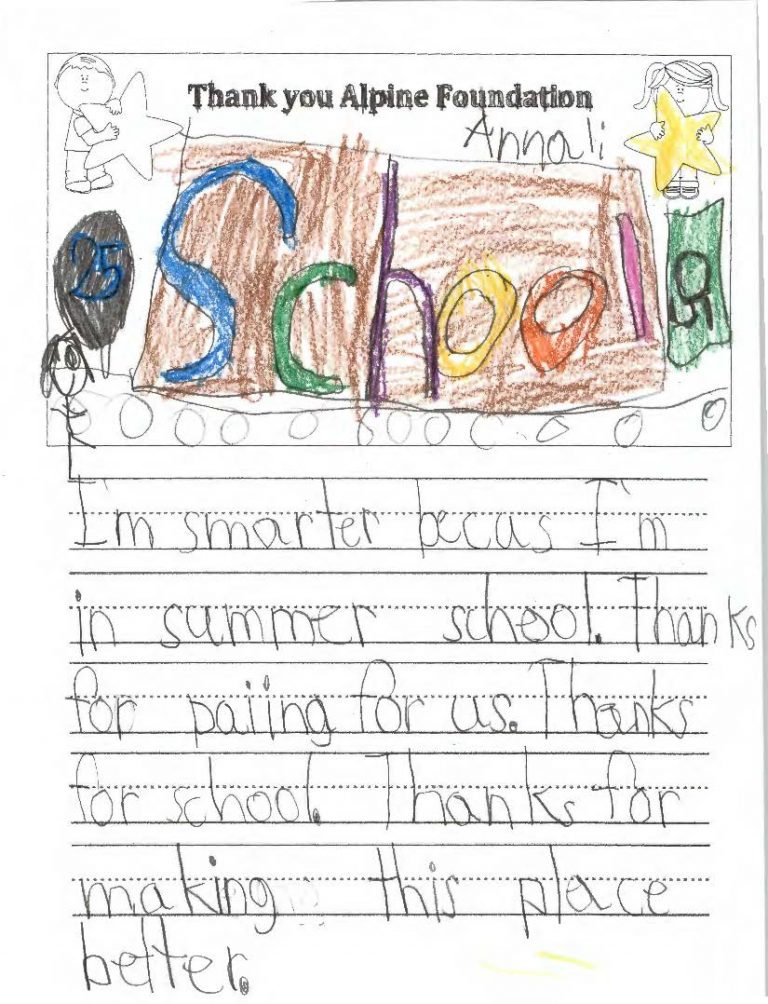 Thank you Alpine Foundation
Annali
25
School
I'm smarter becus I'm
in summer school. Thanks
for paiing for us. Thanks
for school. Thanks for
making this place
better.